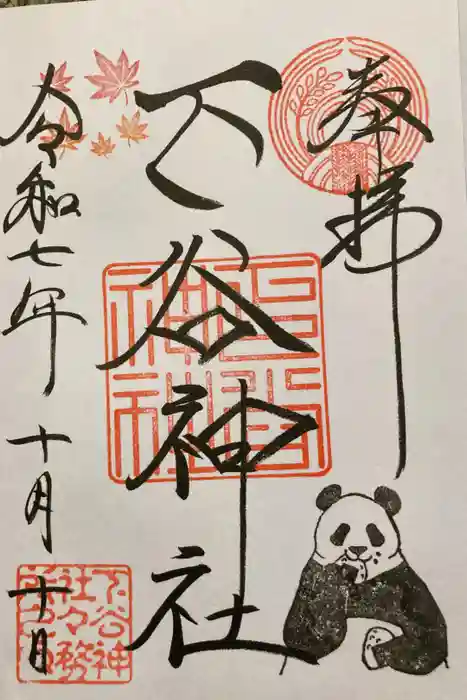 奉拝
下谷神社
令和七年十月十日
下谷神社
下谷神社々務所之印